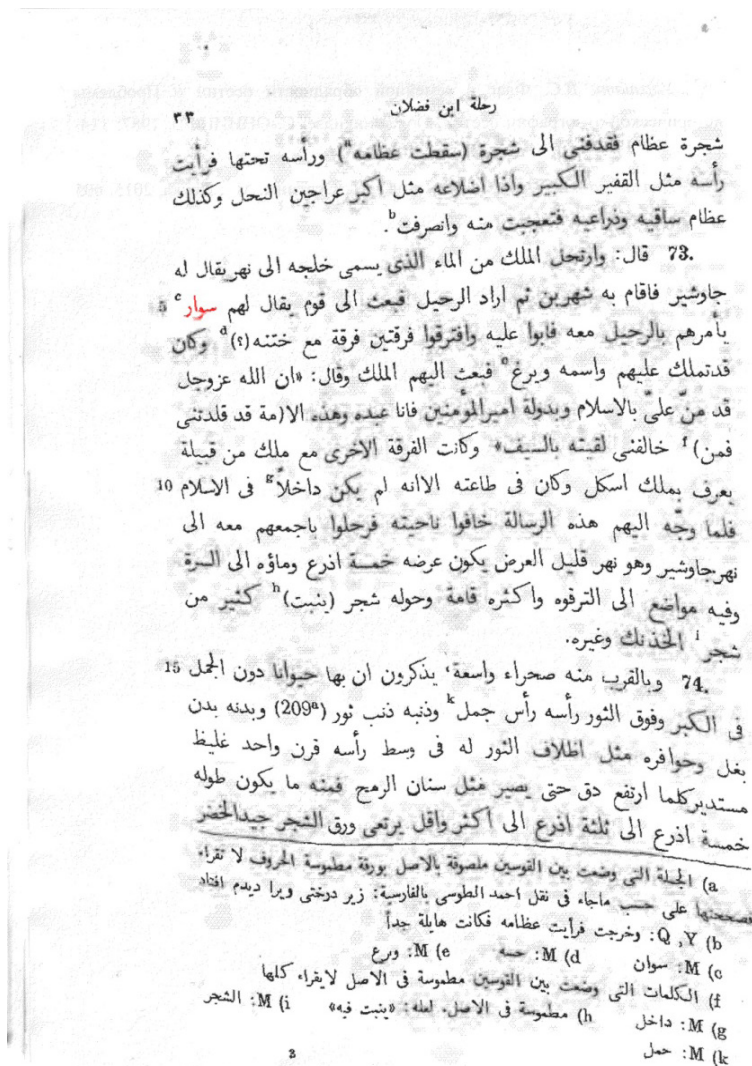 رحلة ابن فضلان
٣٣
شجرة عظام فقدفنى الى شجرة (سقطت عظامه a) ورأسه تحتها فرأيت
رأسه مثل القفير الكبير واذا اضلاعه مثل اكبر عراجين النحل وكذلك
عظام ساقيه وذراعيه فتعجبت منه وانصرفت b.
73. قال: وارتحل الملك من الماء الذى يسمى خلجه الى نهر يقال له
جاوشير فاقام به شهرين ثم اراد الرحيل فبعث الى قوم يقال لهم سوار c 5
يأمرهم بالرحيل معه فابوا عليه وافترقوا فرقتين فرقة مع ختنه (؟) d وكان
قدتملك عليهم واسمه ويرغ e فبعث اليهم الملك وقال: «ان الله عزوجل
قد منّ علىّ بالاسلام وبدولة اميرالمؤمنين فانا عبده وهذه الا(مة قد قلدتنى
فمن) f خالفنى لقيته بالسيف» وكانت الفرقة الاخرى مع ملك من قبيلة
يعرف بملك اسكل وكان فى طاعته الاانه لم يكن داخلاً g فى الاسلام 10
فلما وجّه اليهم هذه الرسالة خافوا ناحيته فرحلوا باجمعهم معه الى
نهرجاوشير وهو نهر قليل العرض يكون عرضه خمسة اذرع وماؤه الى السرة
وفيه مواضع الى الترقوه واكثره قامة وحوله شجر (ينبت) h كثير من
شجر i الخذنك وغيره.
74. وبالقرب منه صحراء واسعة، يذكرون ان بها حيوانا دون الجمل 15
فى الكبر وفوق الثور رأسه رأس جمل k وذنبه ذنب ثور (209a) وبدنه بدن
بغل وحوافره مثل اظلاف الثور له فى وسط رأسه قرن واحد غليظ
مستديركلما ارتفع دق حتى يصير مثل سنان الرمح فمنه ما يكون طوله
خمسة اذرع الى ثلثة اذرع الى اكثر واقل يرتعى ورق الشجر جيدالخضر
a) الجملة التى وضعت بين القوسين ملصوقة بالاصل بورقة مطموسة الحروف لا تقراء
فصححتها على حسب ماجاء فى نقل احمد الطوسى بالفارسية: زير درختى ويرا ديدم افتاد
b) Q, Y: وخرجت فرأيت عظامه فكانت هايلة جداً
c) M: سوان d) M: حسه e) M: ويرغ
f) الكلمات التى وضعت بين القوسين مطموسة فى الاصل لايقراء كلها
g) M: داخل h) مطموسة فى الاصل. لعله: «ينبت فيه» i) M: الشجر
k) M: حمل
3